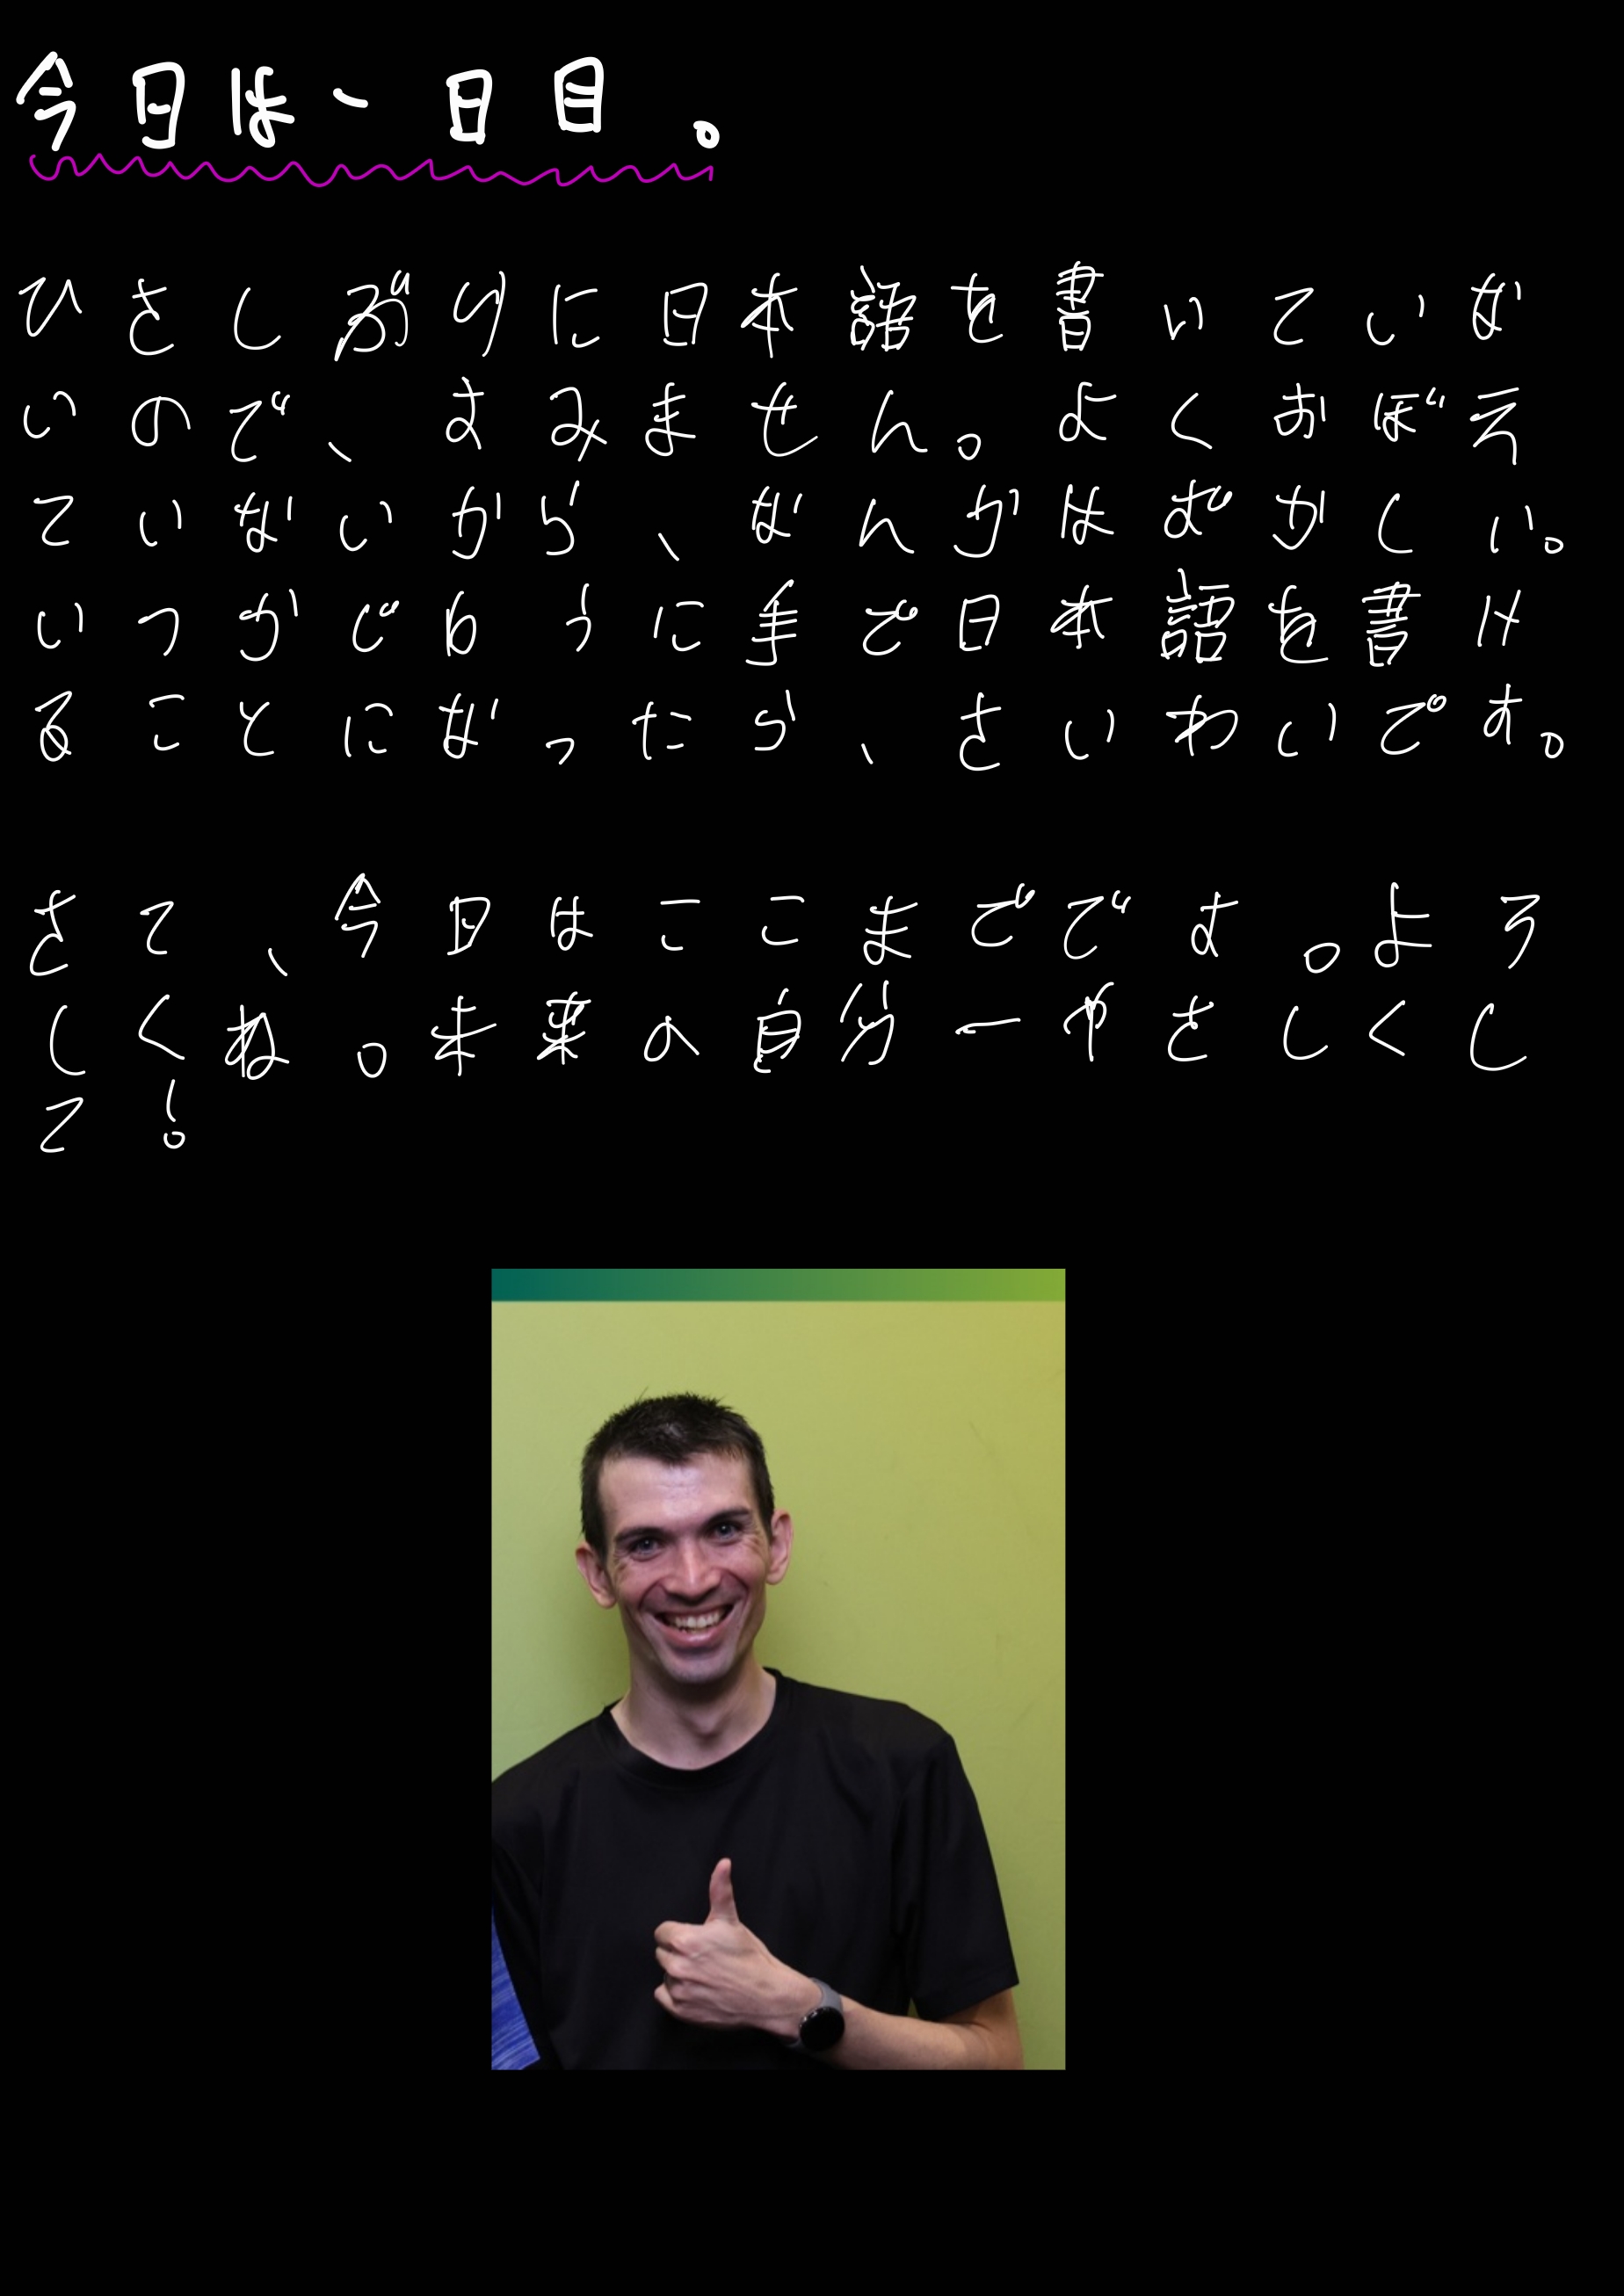 今日は一日目。
ひさしぶりに日本語を書いていな
いので、すみません。よくおぼえ
ていないから、なんかはずかしい。
いつかじゆうに手で日本語を書け
ることになったら、さいわいです。
さて、今日はここまでです。よろ
しくね。未来の自分ーやさしくし
て!